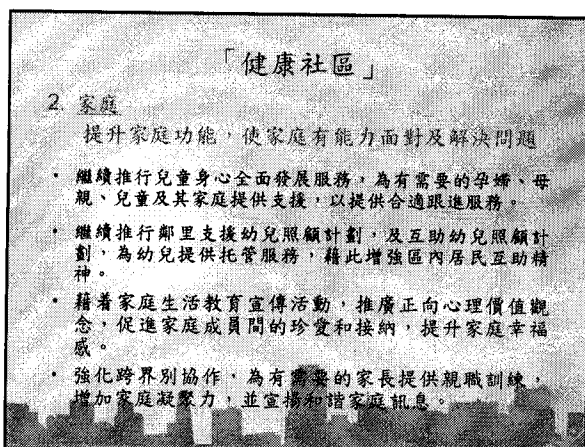 「健康社區」
2. 家庭
提升家庭功能，使家庭有能力面對及解決問題
• 繼續推行兒童身心全面發展服務，為有需要的孕婦、母
親、兒童及其家庭提供支援，以提供合適跟進服務。
• 繼續推行鄰里支援幼兒照顧計劃，及互助幼兒照顧計
劃，為幼兒提供托管服務，藉此增強區內居民互助精
神。
• 藉着家庭生活教育宣傳活動，推廣正向心理價值觀
念，促進家庭成員間的珍愛和接納，提升家庭幸福
感。
• 強化跨界別協作，為有需要的家長提供親職訓練，
增加家庭凝聚力，並宣揚和諧家庭訊息。